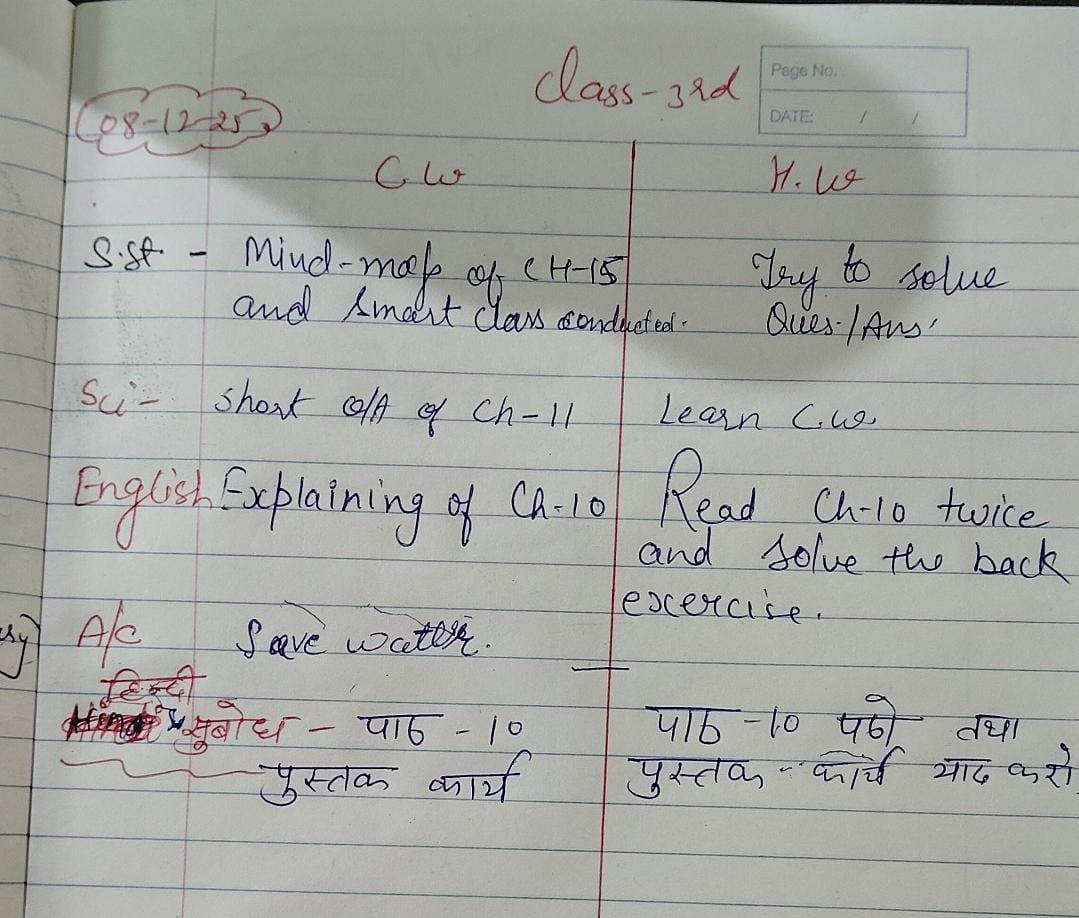 Class-3rd
Page No.
DATE: / /
08-12-25
C.W
H.W
S.St - Mind-map of CH-15
and Smart class conducted.
Try to solve
Ques./Ans'
Sci- Short Q/A of Ch-11
Learn C.W.
English Explaining of Ch-10
Read Ch-10 twice
and solve the back
excercise.
A/c Save water.
—
हिन्दी
सुबोध - पाठ - 10
पुस्तक कार्य
पाठ -10 पढो तथा
पुस्तक - कार्य याद करो